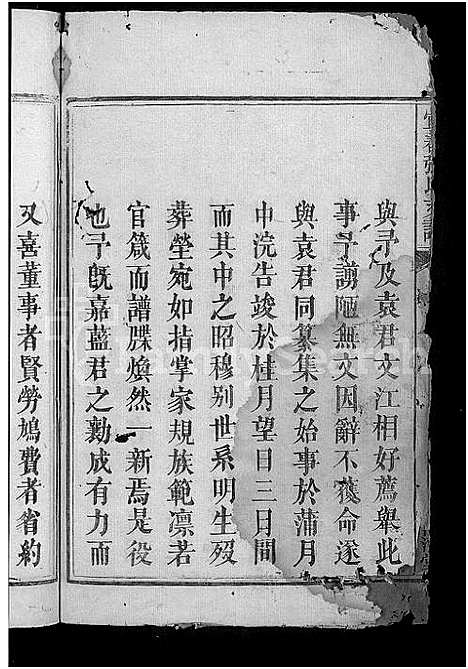 與予及袁君文江相好薦舉此
事予謭陋無文因辭不獲命遂
與袁君同纂集之始事於蒲月
中浣告竣於桂月望日三日間
而其中之昭穆别世系明生歿
葬塋宛如指掌家規族範凛若
官箴而譜牒煥然一新焉是役
也予旣嘉藍君之勷成有力而
又喜董事者賢勞鳩費者省約